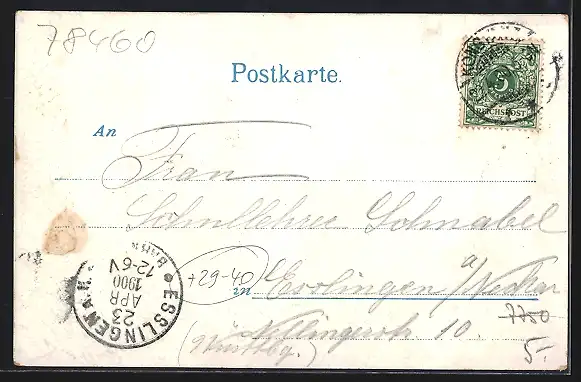 78460
Postkarte.
5
REICHSPOST
An
Frau
Schullehrer Schnabel
+29-40
in Esslingen a/Neckar
Nellingerstr. 10.
(Württbg.)
7750
5.-
ESSLINGEN a. N.
23
APR
1900
12-6V
BAHN